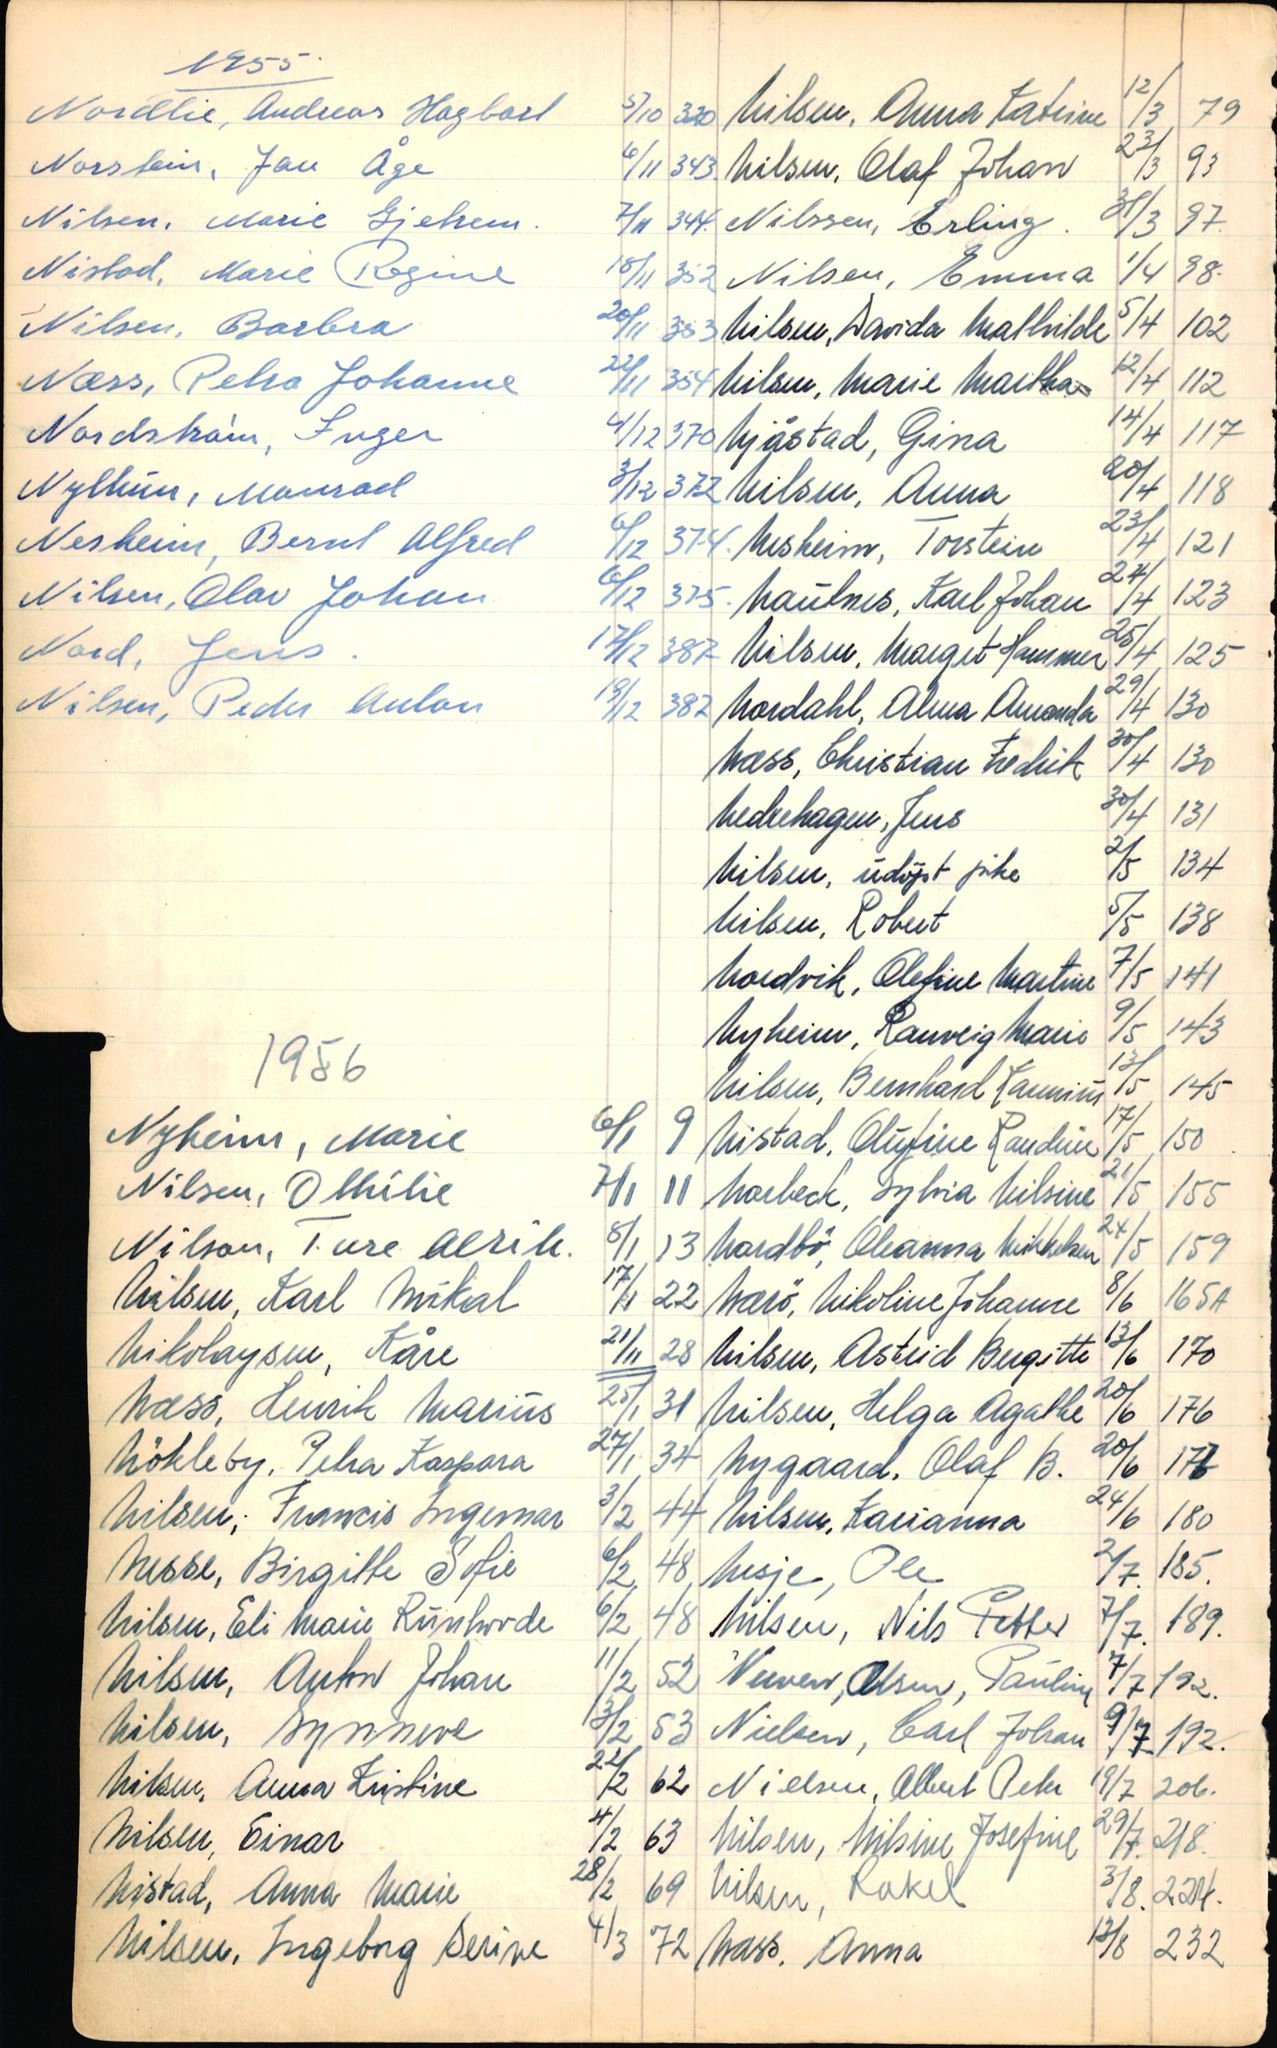 1955.
Nordlie, Andreas Hagbart 5/10 330
Norstein, Jan Åge 6/11 343.
Nilsen, Marie Gjelsem. 7/11 344.
Nistad, Marie Regine 18/11 352
Nilsen, Barbra 20/11 353
Næss, Petra Johanne 22/11 354
Nordstrøm, Inger 4/12 370
Nylhun, Monrad 3/12 372
Nesheim, Bernt Alfred 6/12 374.
Nilsen, Olav Johan 6/12 375.
Nord, Jens. 17/12 387
Nilsen, Peder Anton 19/12 382
1956
Nyheim, Marie 6/1 9
Nilsen, Othilie 7/1 11
Nilson, Ture Alrik. 8/1 13
Nilsen, Karl Mikal 17/1 22
Nikolaysen, Kåre 21/11 28
Næss, Henrik Marius 25/1 31
Nökleby, Petra Kaspara 27/1 34
Nilsen, Francis Ingemar 3/2 44
Nesse, Birgitte Sofie 6/2 48
Nilsen, Eli Marie Runhovde 6/2 48
Nilsen, Anton Johan 11/2 52
Nilsen, Synneve 13/2 53
Nilsen, Anna Kristine 22/2 62
Nilsen, Einar 4/2 63
Nistad, Anna Marie 28/2 69
Nilsen, Ingeborg Serine 4/3 72
Nilsen, Anna Katrine 12/3 79
Nilsen, Olaf Johan 23/3 93
Nilssen, Erling. 31/3 97.
Nilsen, Emma 1/4 98.
Nilsen, Davida Mathilde 5/4 102
Nilsen, Marie Martha 12/4 112
Njåstad, Gina 14/4 117
Nilsen, Anna 20/4 118
Nesheim, Torstein 23/4 121
Nautnes, Karl Johan 24/4 123
Nilsen, Marget Hammer 25/4 125
Nordahl, Alma Amanda 29/4 130
Næss, Christian Fredrik 30/4 130
Nedrehagen, Jens 30/4 131
Nilsen, udøpt pike 2/5 134
Nilsen, Robert 5/5 138
Nordvik, Olefine Martine 7/5 141
Nyheim, Ranveig Marie 9/5 143
Nilsen, Bernhard 13/5 145
Nistad, Olufine Randine 17/5 150
Norbeck, Sylvia Nilsine 21/5 155
Nordbö, Oleanna Mikkelsen 24/5 159
Nærö, Nikoline Johanne 8/6 165A
Nilsen, Astrid Bergitte 13/6 170
Nilsen, Helga Agathe 20/6 176
Nygaard, Olaf B. 20/6 177
Nilsen, Karianna 24/6 180
Nesje, Ole 2/7. 185.
Nilsen, Nils Petter 7/7. 189.
Olsen, Pauline 7/7 192.
Nielsen, Carl Johan 9/7 192.
Nielsen, Albert Peter 19/7 206.
Nilsen, Nilsine Josefine 29/7. 218.
Nilsen, Rakel 3/8. 224.
Næss, Anna 13/8 232